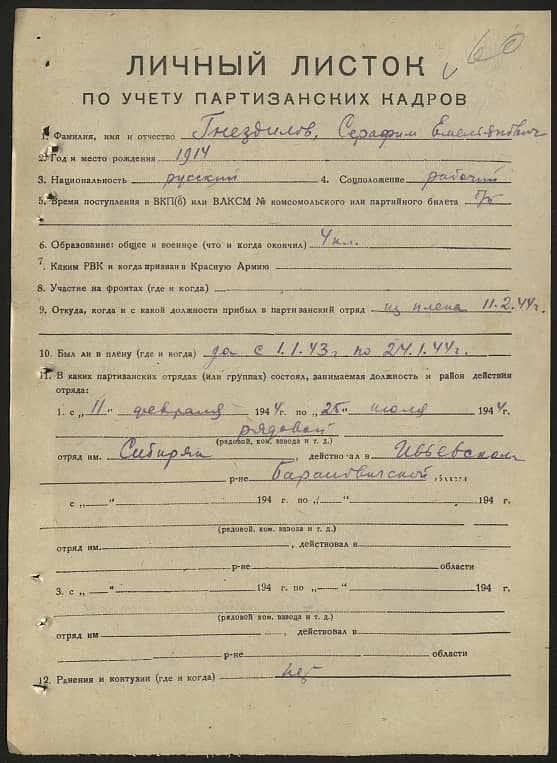 60
ЛИЧНЫЙ ЛИСТОК
ПО УЧЕТУ ПАРТИЗАНСКИХ КАДРОВ
1. Фамилия, имя и отчество Гнездилов, Серафим Емельянович
2. Год и место рождения 1914
3. Национальность русский 4. Соцположение рабочий
5. Время поступления в ВКП(б) или ВЛКСМ № комсомольского или партийного билета б/п
6. Образование: общее и военное (что и когда окончил) 4 кл.
7. Каким РВК и когда призван в Красную Армию
8. Участие на фронтах (где и когда)
9. Откуда, когда и с какой должности прибыл в партизанский отряд из плена 11.2.44г.
10. Был ли в плену (где и когда) да с 1.1.43г по 24.1.44г.
11. В каких партизанских отрядах (или группах) состоял, занимаемая должность и район действия
отряда:
1. с „11“ февраля 1944 г. по „25“ июля 1944 г.
рядовой
(рядовой, ком. взвода и т. д.)
отряд им. Сибиряк, действовал в Ивьевском
р-не Барановичской области
с „ “ 194 г. по „ “ 194 г.
(рядовой, ком. взвода и т. д.)
отряд им. , действовал в
р-не области
3. с „ “ 194 г. по „ “ 194 г.
(рядовой, ком. взвода и т. д.)
отряд им. , действовал в
р-не области
12. Ранения и контузии (где и когда) нет